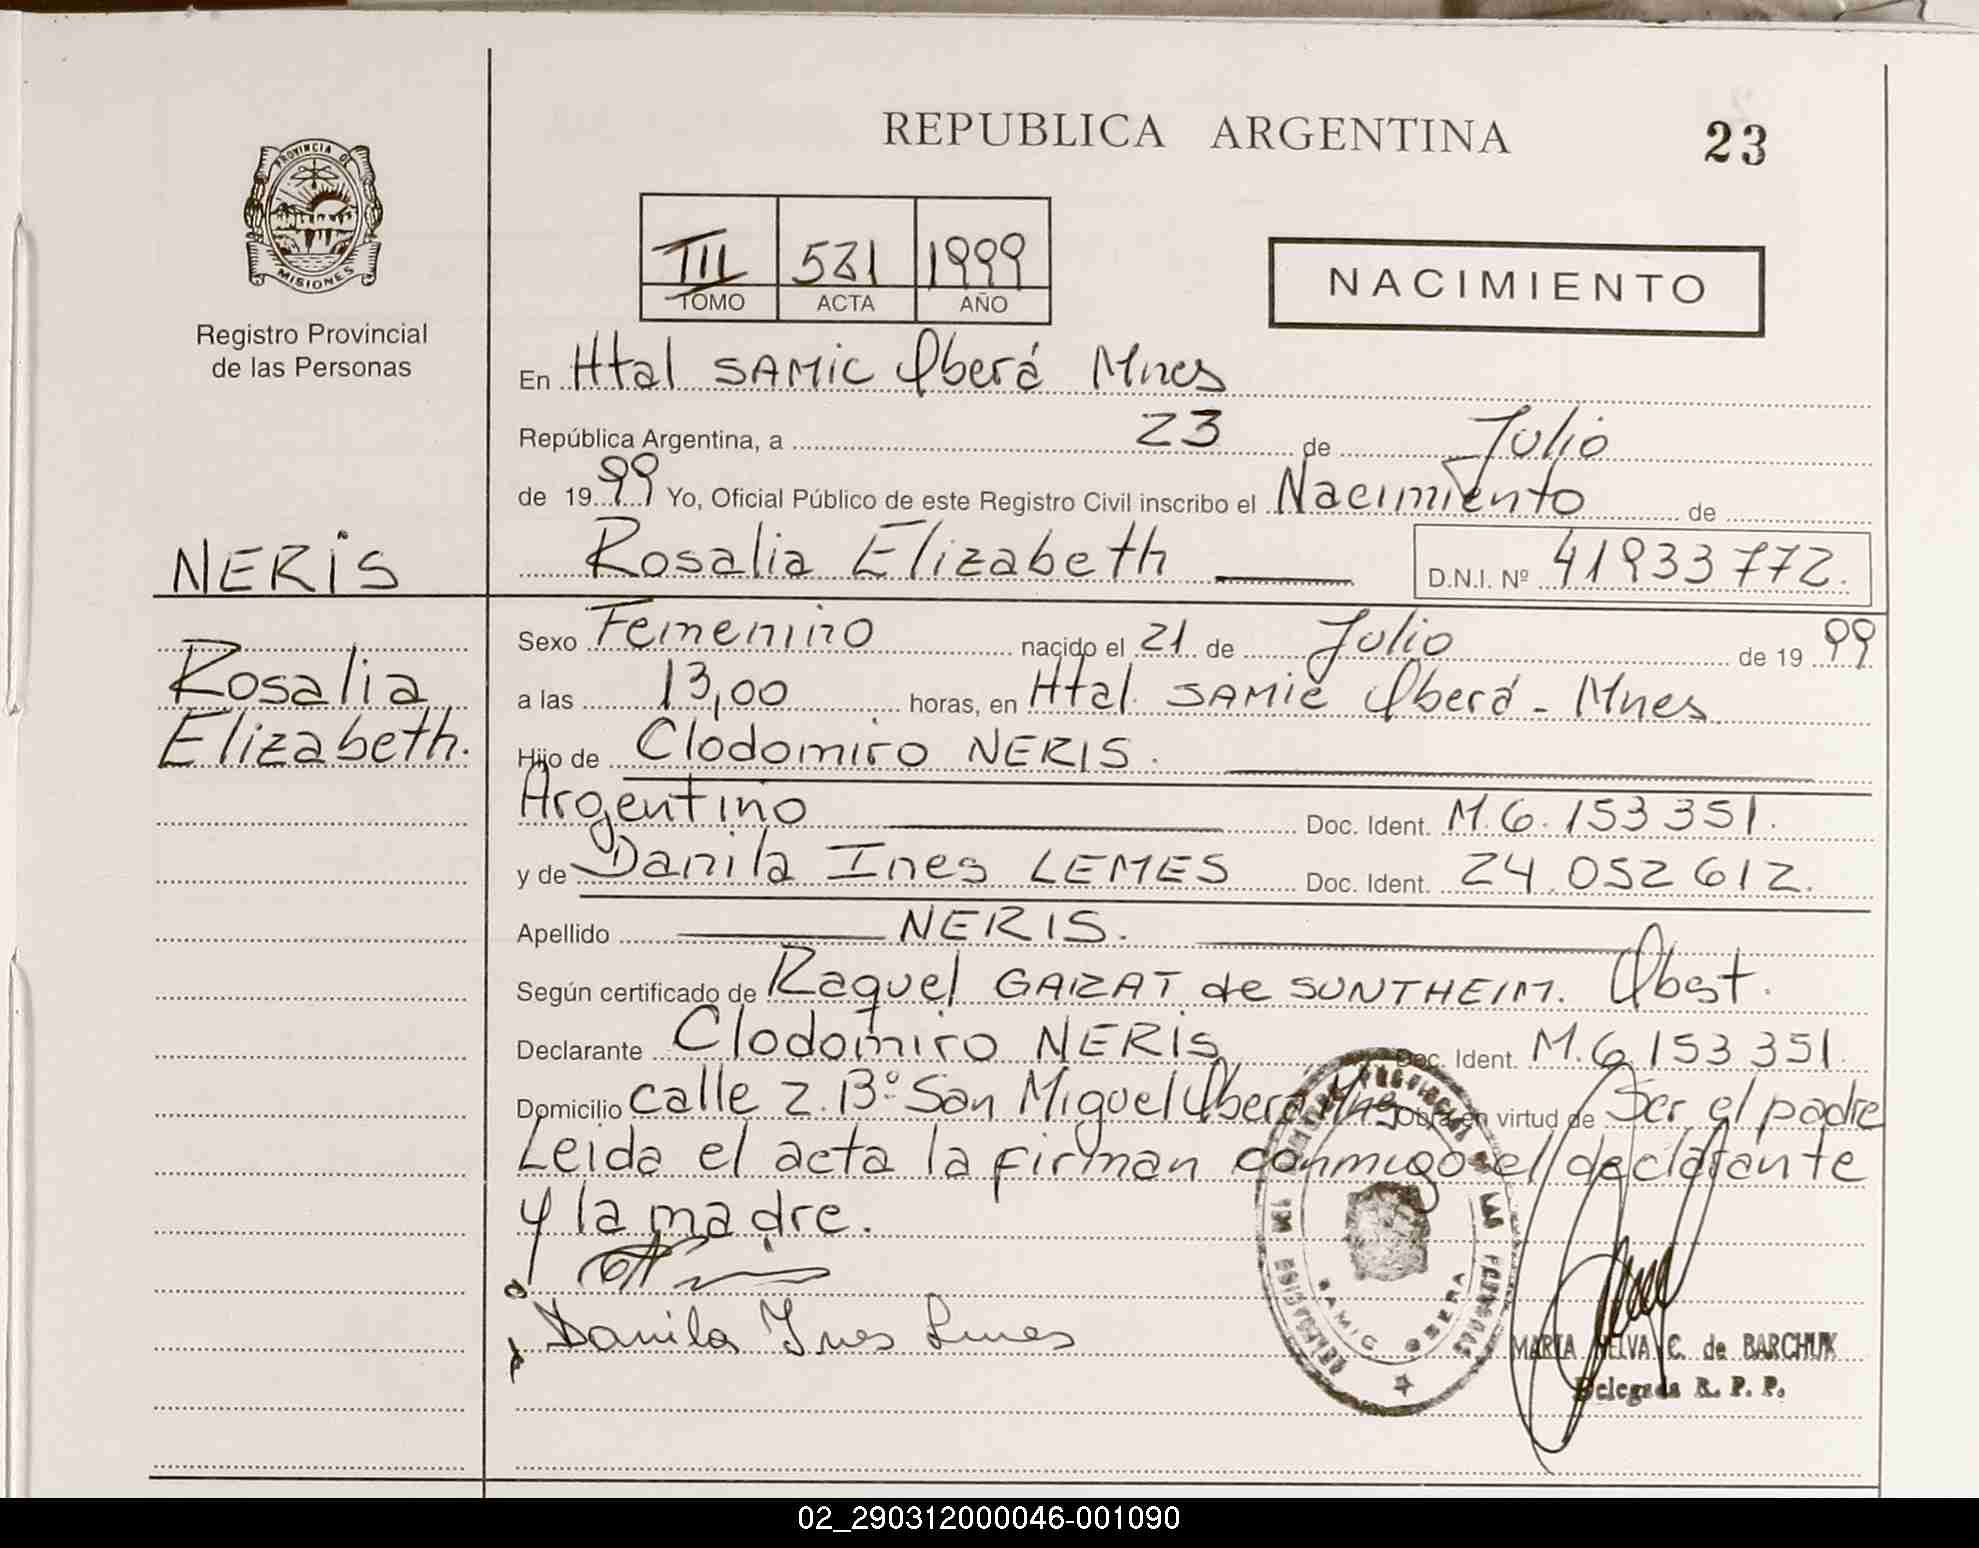 REPUBLICA ARGENTINA
23
PROVINCIA DE
MISIONES
Registro Provincial
de las Personas
III 531 1999
TOMO ACTA AÑO
NACIMIENTO
En Htal SAMIC Oberá Mnes
República Argentina, a 23 de Julio
de 1999 Yo, Oficial Público de este Registro Civil inscribo el Nacimiento de
NERIS
Rosalia Elizabeth D.N.I. Nº 41933772.
Rosalia
Elizabeth.
Sexo Femenino nacido el 21 de Julio de 19 99
a las 13,00 horas, en Htal. SAMIC Oberá - Mnes
Hijo de Clodomiro NERIS.
Argentino Doc. Ident. M.6.153351.
y de Danila Ines LEMES Doc. Ident. 24.052612.
Apellido NERIS.
Según certificado de Raquel GAIZAT de SUNTHEIM. Obst.
Declarante Clodomiro NERIS Doc. Ident. M.6.153351.
Domicilio calle 2. Bº San Miguel Oberá Mnes Obra en virtud de Ser el padre
Leida el acta la firman conmigo el declarante
y la madre.
Danila Ines Lemes
SAMIC OBERA
MARIA HELVA C. de BARCHUK
Delegada R. P. P.
02_290312000046-001090